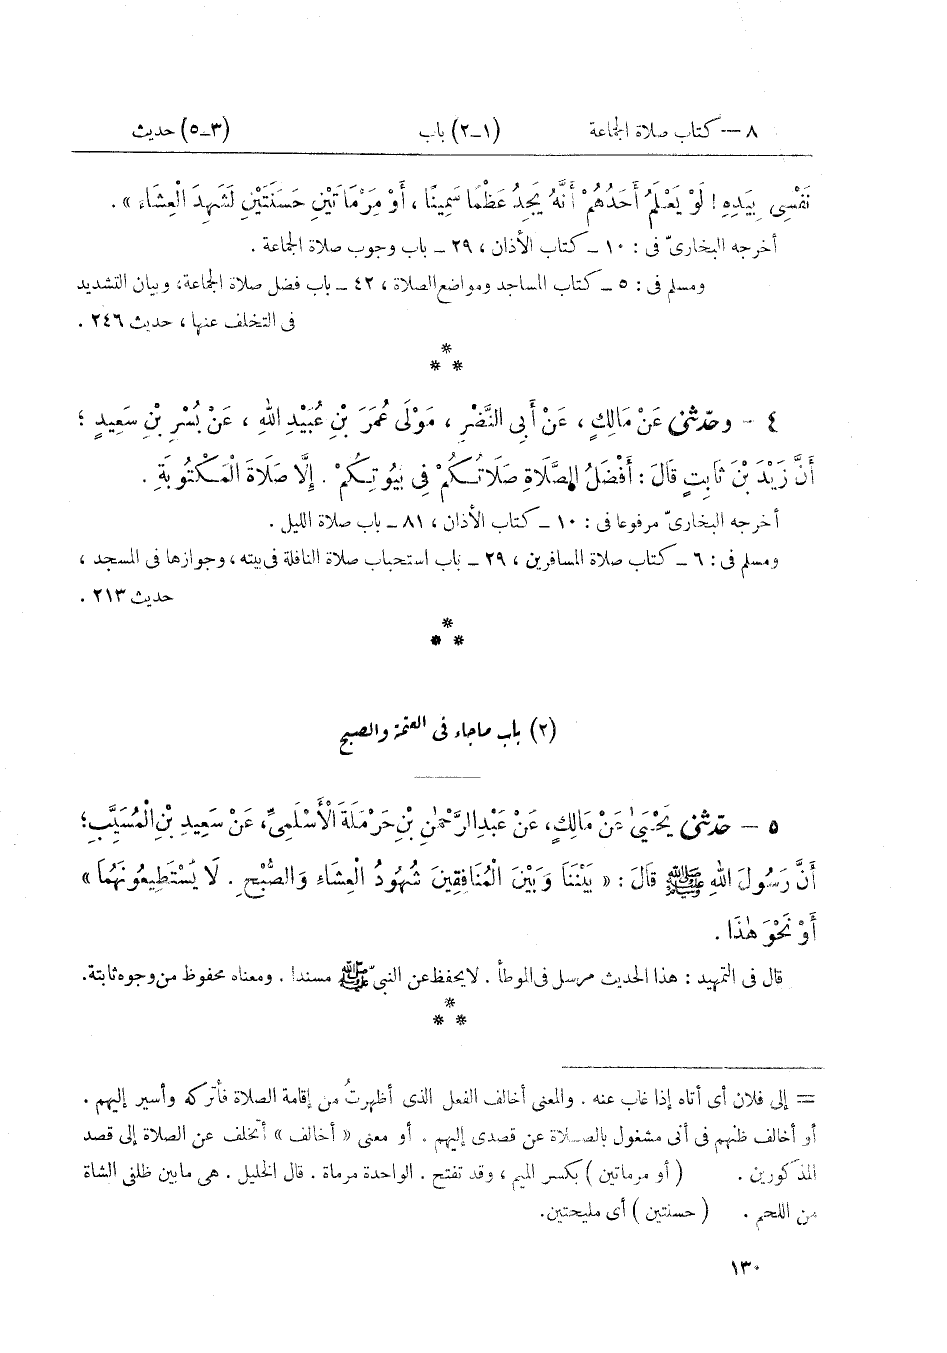 ٨ — كتاب صلاة الجماعة (١-٢) باب (٣-٥) حديث
نَفْسِى بِيَدِهِ ! لَوْ يَعْلَمُ أَحَدُهُمْ أَنَّهُ يَجِدُ عَظْمًا سَمِينًا ، أَوْ مِرْمَاتَيْنِ حَسَنَتَيْنِ لَشَهِدَ الْعِشَاءَ » .
أخرجه البخارىّ فى : ١٠ ـ كتاب الأذان ، ٢٩ ـ باب وجوب صلاة الجماعة .
ومسلم فى : ٥ ـ كتاب المساجد ومواضع الصلاة ، ٤٢ ـ باب فضل صلاة الجماعة، وبيان التشديد
فى التخلف عنها ، حديث ٢٤٦ .
*
* *
٤ - وحدّثنى عَنْ مَالِكٍ ، عَنْ أَبِى النَّضْرِ ، مَوْلَى عُمَرَ بْنِ عُبَيْدِ اللهِ ، عَنْ بُسْرِ بْنِ سَعِيدٍ ؛
أَنَّ زَيْدَ بْنَ ثَابِتٍ قَالَ : أَفْضَلُ الصَّلَاةِ صَلَاتُكُمْ فِى بُيُوتِكُمْ . إِلَّا صَلَاةَ الْمَكْتُوبَةِ .
أخرجه البخارىّ مرفوعا فى : ١٠ ـ كتاب الأذان ، ٨١ ـ باب صلاة الليل .
ومسلم فى : ٦ ـ كتاب صلاة المسافرين ، ٢٩ ـ باب استحباب صلاة النافلة فى بيته ، وجوازها فى المسجد ،
حديث ٢١٣ .
*
* *
(٢) باب ماجاء فى العتمة والصبح
٥ – حدّثنى يَحْيَىٰ عَنْ مَالِكٍ، عَنْ عَبْدِ الرَّحْمٰنِ بْنِ حَرْمَلَةَ الْأَسْلَمِىِّ، عَنْ سَعِيدِ بْنِ الْمُسَيَّبِ؛
أَنَّ رَسُولَ اللهِ ﷺ قَالَ : « بَيْنَنَا وَبَيْنَ الْمُنَافِقِينَ شُهُودُ الْعِشَاءِ وَالصُّبْحِ . لَا يَسْتَطِيعُونَهُمَا »
أَوْ نَحْوَ هٰذَا .
قال فى التمهيد : هذا الحديث مرسل فى الموطأ . لا يحفظ عن النبىّ ﷺ مسندا . ومعناه محفوظ من وجوه ثابتة.
*
* *
= إلى فلان أى أتاه إذا غاب عنه . والمعنى أخالف الفعل الذى أظهرتُ من إقامة الصلاة فأتركه وأسير إليهم .
أو أخالف ظنهم فى أنى مشغول بالصلاة عن قصدى إليهم . أو معنى « أخالف » أتخلف عن الصلاة إلى قصد
المذكورين . ( أو مرماتين ) بكسر الميم ، وقد تفتح . الواحدة مرماة . قال الخليل . هى مابين ظلفى الشاة
من اللحم . ( حسنتين ) أى مليحتين.
١٣٠